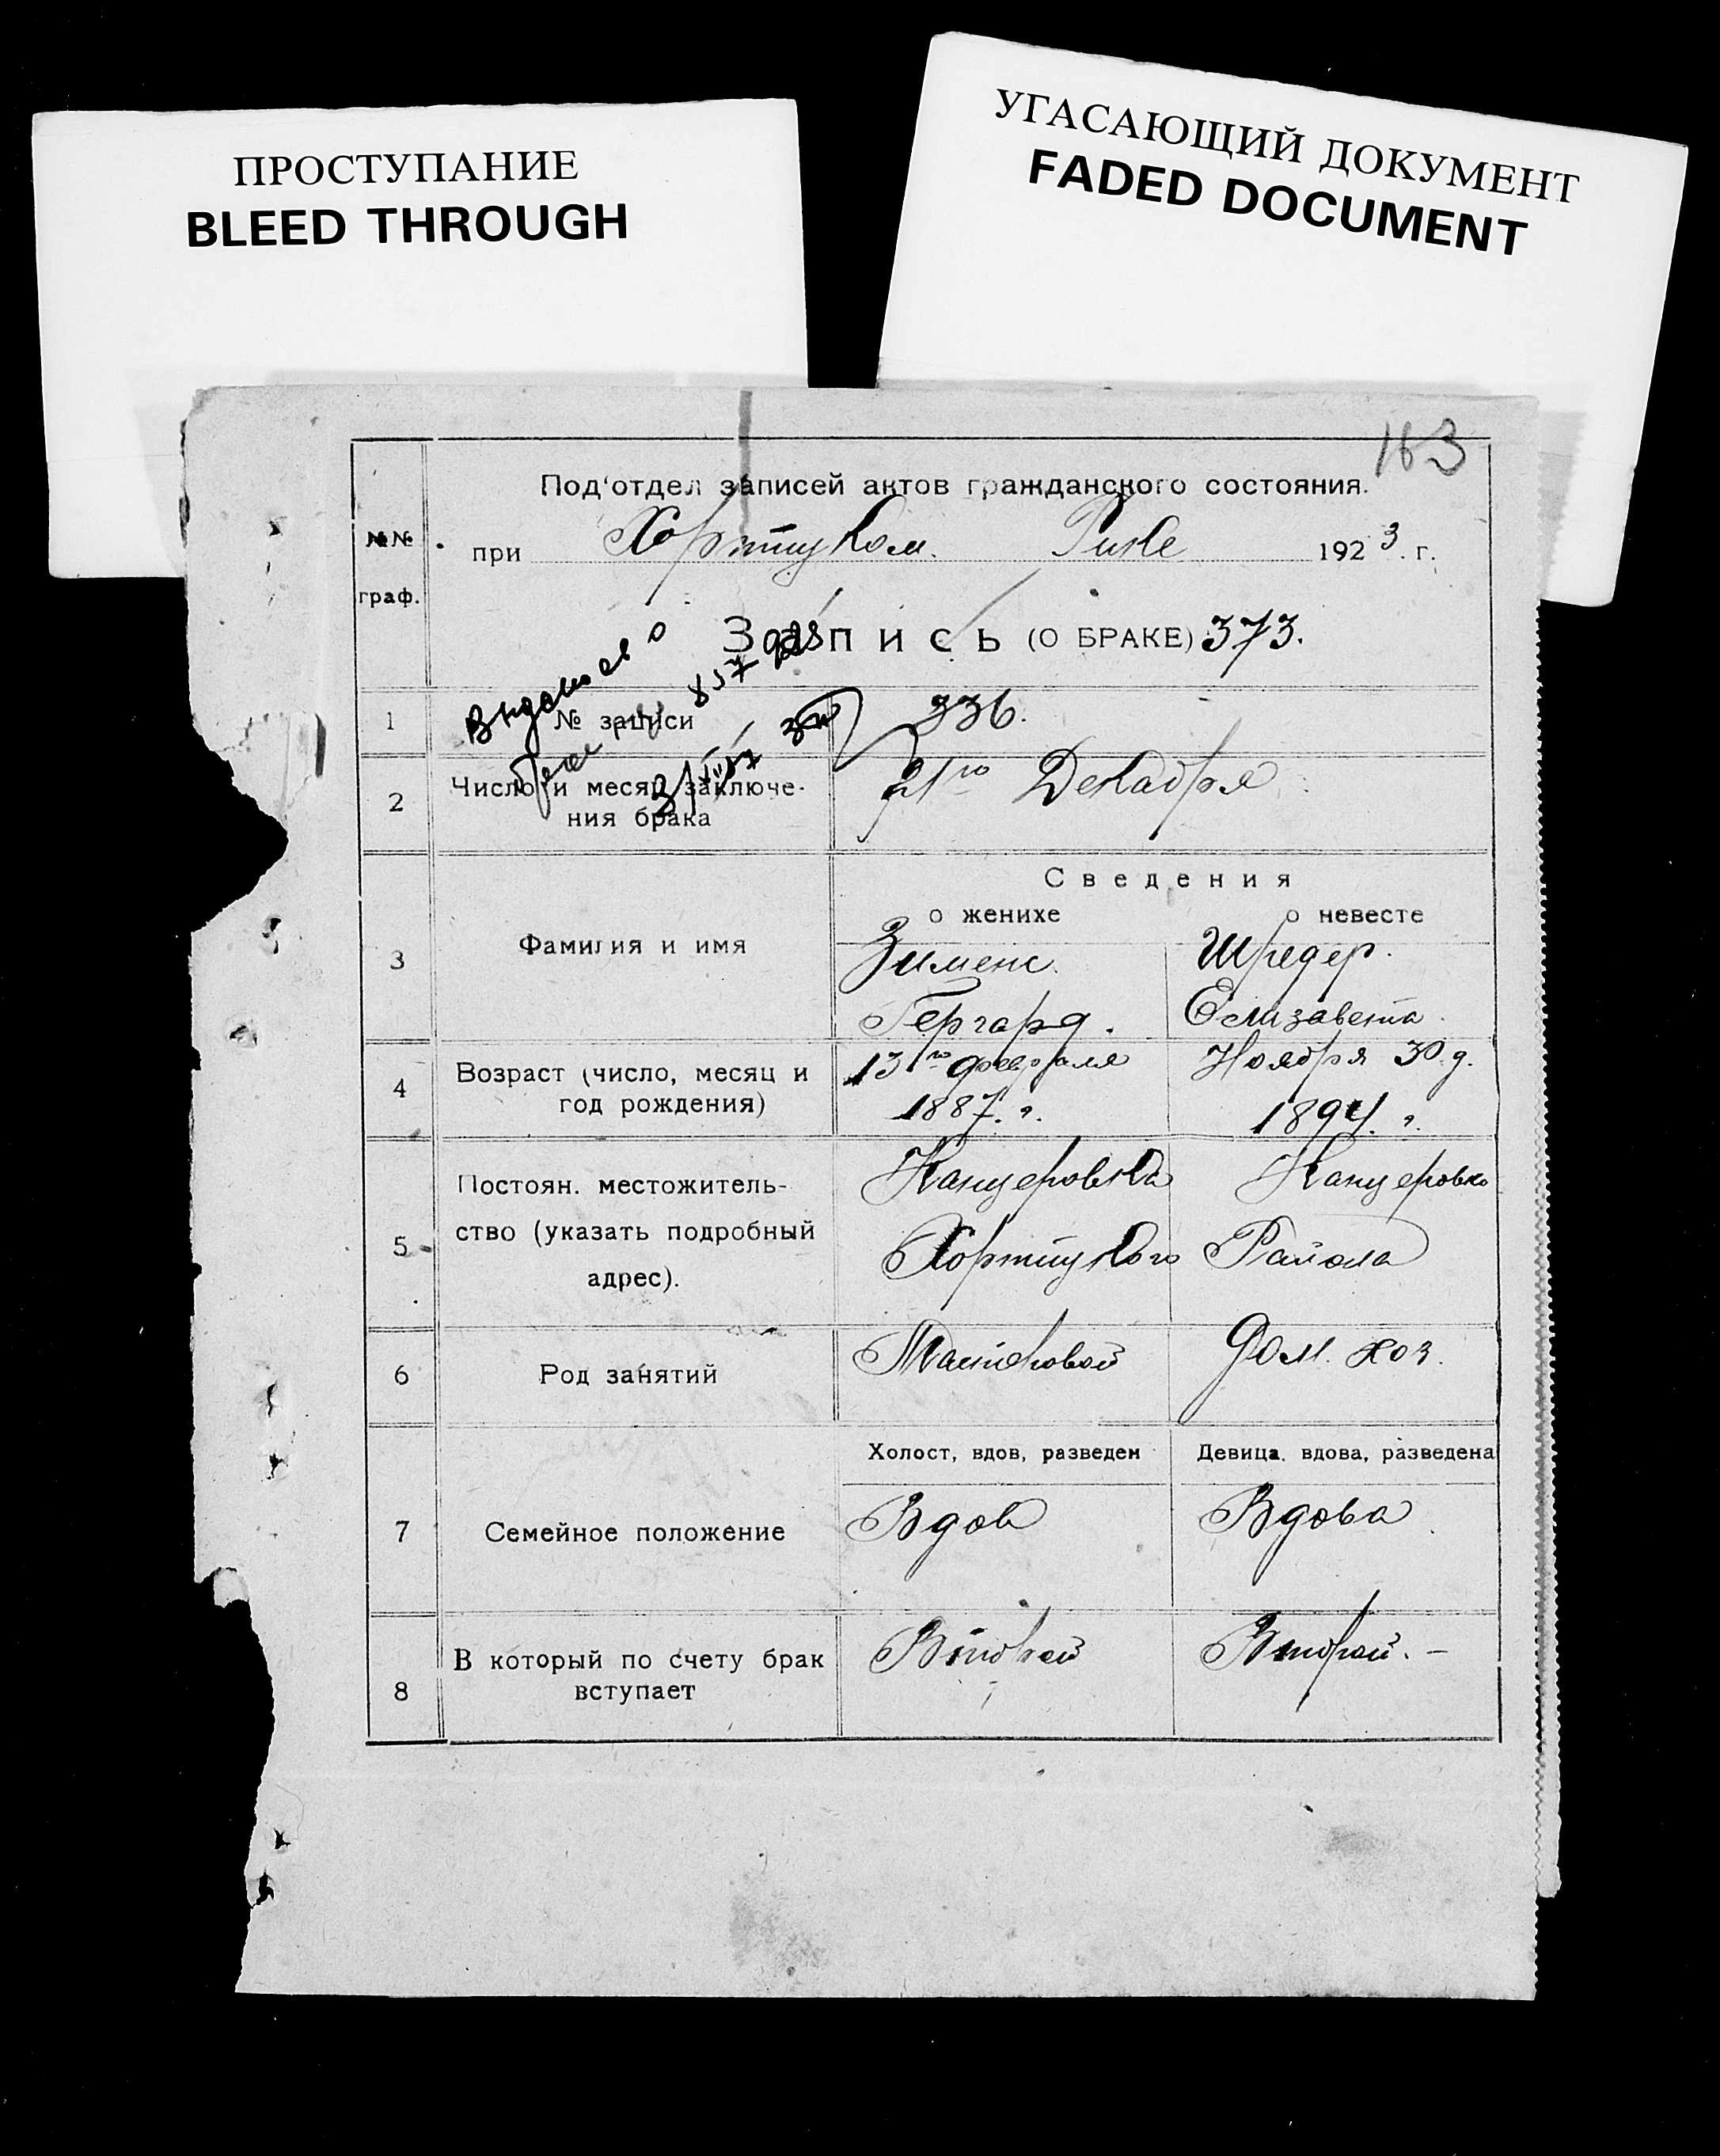 ПРОСТУПАНИЕ
BLEED THROUGH
УГАСАЮЩИЙ ДОКУМЕНТ
FADED DOCUMENT
163
Под'отдел записей актов гражданского состояния.
№№ граф.
при Хортицком. Рике 1923. г.
Запись (О БРАКЕ) 373.
Выдано св о
браке 857
1 № записи 336.
2 Число и месяц заключе-
ния брака 21го Декабря
Сведения
о женихе о невесте
3 Фамилия и имя Зименс. Шредер.
Гергард. Елизавета.
4 Возраст (число, месяц и 13го февраля Ноября 30.д.
год рождения) 1887. г. 1894. г.
Постоян. местожитель- Канцеровка Канцеровка
5 ство (указать подробный Хортицкого Района
адрес).
6 Род занятий Дом. хоз.
Холост, вдов, разведен Девица. вдова, разведена
7 Семейное положение Вдов Вдова
В который по счету брак Второй Второй. –
8 вступает